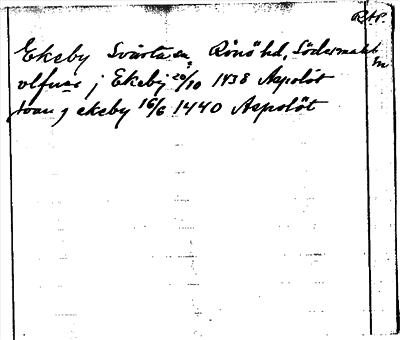 R.A.P.
Ekeby Svärta sn, Rönö hd, Södermanl
sn
olfuær j Ekeby 20/10 1438 Aspolöt
joan j ekeby 16/6 1440 Aspolöt